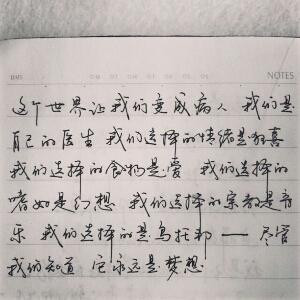 NOTES
这个世界让我们变成病人 我们是
自己的医生 我们选择的情绪是狂喜
我们选择的食物是爱 我们选择的
嗜好是幻想 我们选择的宗教是音
乐 我们选择的是乌托邦 —— 尽管
我们知道 它永远是梦想